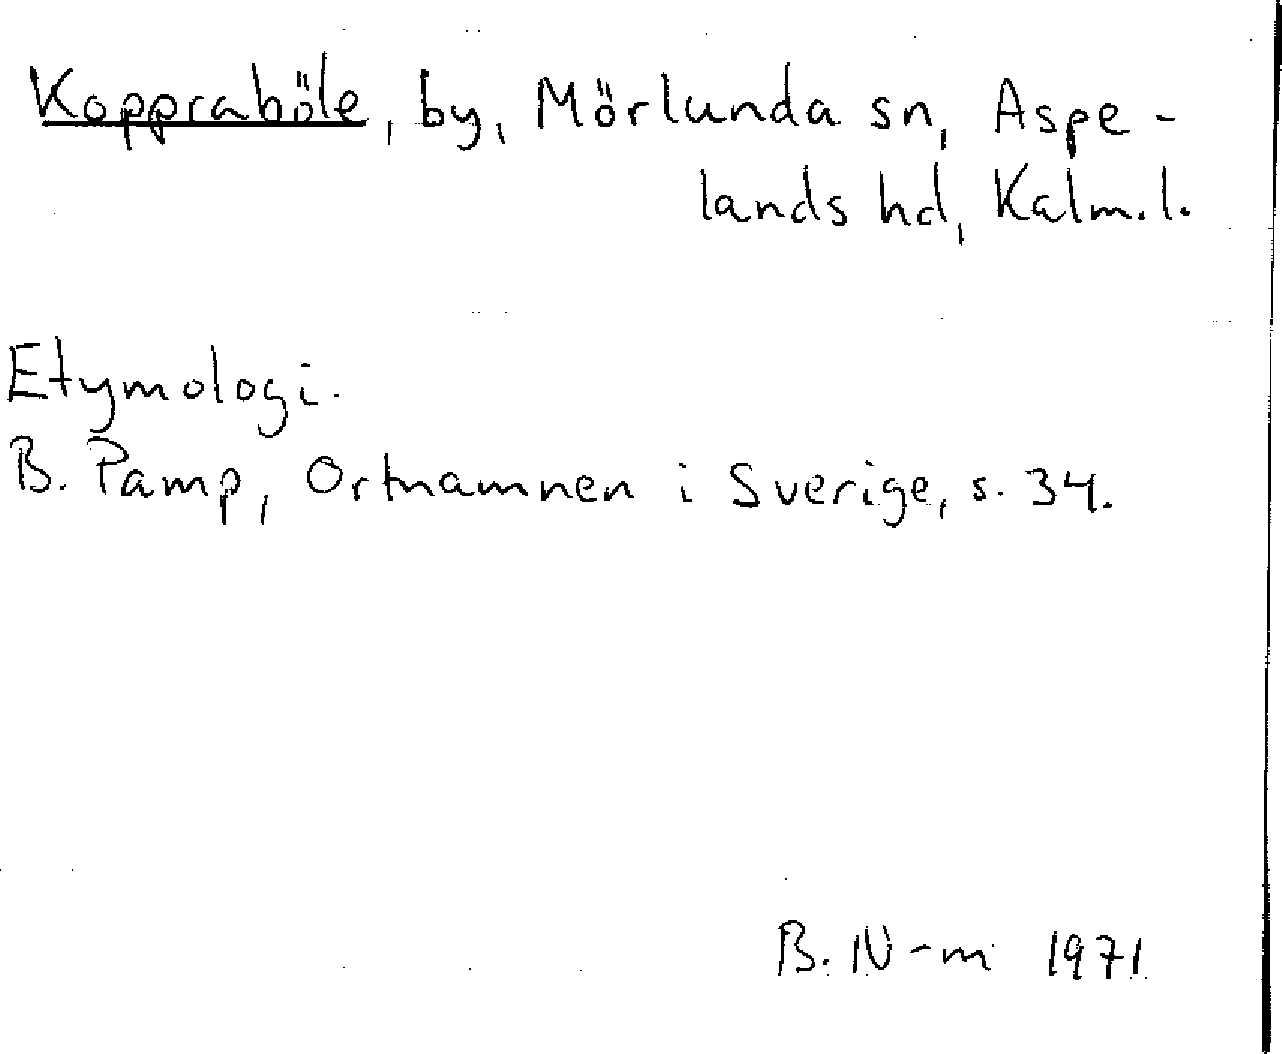 Koppraböle, by, Mörlunda sn, Aspe-
lands hd, Kalm. l.
Etymologi.
B. Pamp, Ortnamnen i Sverige, s. 34.
B. N-m 1971